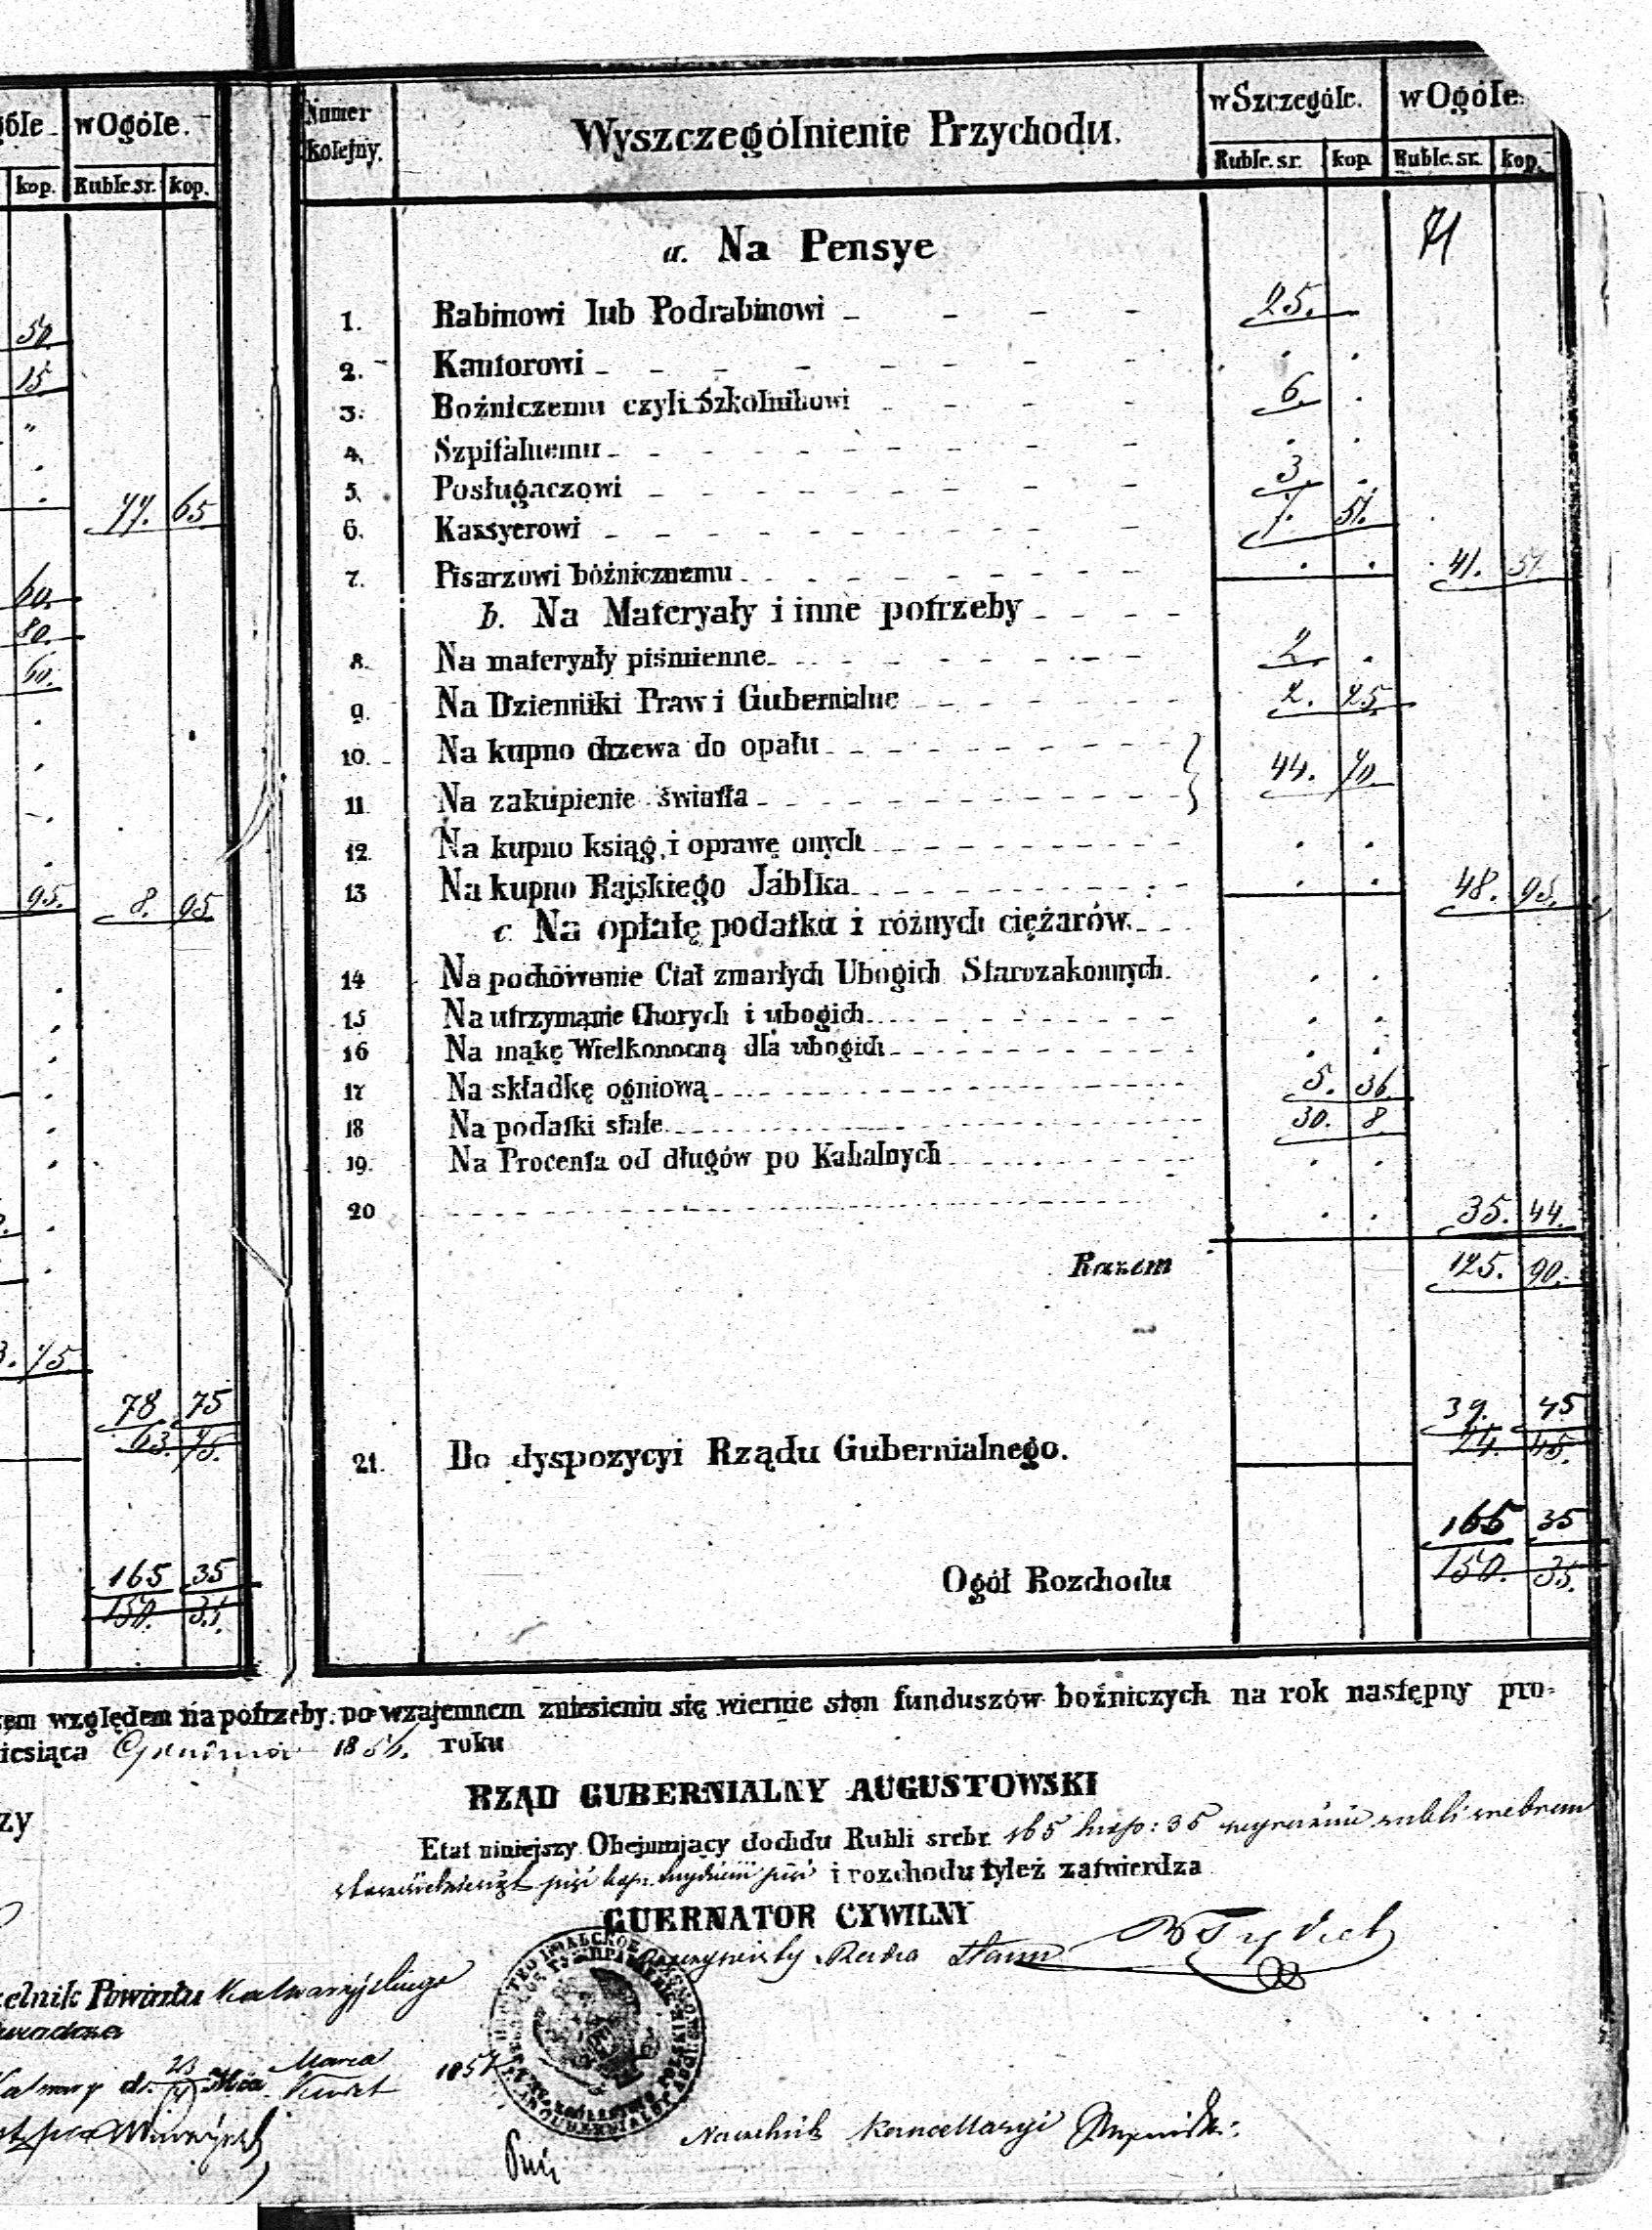 góle wOgóle.
kop. Ruble.sr. kop.
50.
15.
"
77. 65.
60.
80.
60.
95. 8. 95.
3. 75.
78 75
63. 75.
165 35
150. 35.
Numer kolejny. Wyszczególnienie Przychodu. wSzczególe. wOgóle.
Ruble.sr. kop Ruble.sr. kop.
a. Na Pensye
1. Rabinowi lub Podrabinowi 25.
2. Kantorowi
3. Bożniczemu czyli Szkolnikowi 6.
4. Szpitalnemu
5. Posługaczowi 3.
6. Kassyerowi 7. 51.
7. Pisarzowi bóżnicznemu 41. 51.
b. Na Materyały i inne potrzeby
8. Na materyały piśmienne 2.
9. Na Dzienniki Praw i Gubernialne 2. 25.
10. Na kupno drzewa do opału
11. Na zakupienie światła } 44. 70.
12. Na kupno ksiąg, i oprawę onych
13 Na kupno Rajskiego Jabłka 48. 95.
c Na opłatę podatku i różnych ciężarów.
14 Na pochówanie Ciał zmarłych Ubogich Starozakonnych.
15 Na utrzymanie Chorych i ubogich
16 Na mąkę Wielkonocną dla ubogich
17 Na składkę ogniową 5. 36.
18 Na podatki stałe 30. 8.
19. Na Procenta od długów po Kahalnych
20 35. 44.
Razem 125. 90.
39. 45
21. Do dyspozycyi Rządu Gubernialnego. 24. 45.
165 35
Ogół Rozchodu 150. 35.
względem na potrzeby po wzajemnem zniesieniu się wiernie stan funduszów bożniczych na rok następny pro-
iesiąca Grudnia 1856. roku
RZĄD GUBERNIALNY AUGUSTOWSKI
zy
Etat niniejszy Obejmujący dochdu Rubli srebr. 165 kop: 35 wyraźnie rubli srebrem
sto sześćdziesiąt pięć kop. trzydzieści pięć i rozchodu tyleż zatwierdza
GUERNATOR CYWILNY
Rzeczywisty Radca Stanu
elnik Powiatu Kalwaryjskiego
Marca
d. 23 Mca 1857
Naczelnik Kancellaryi